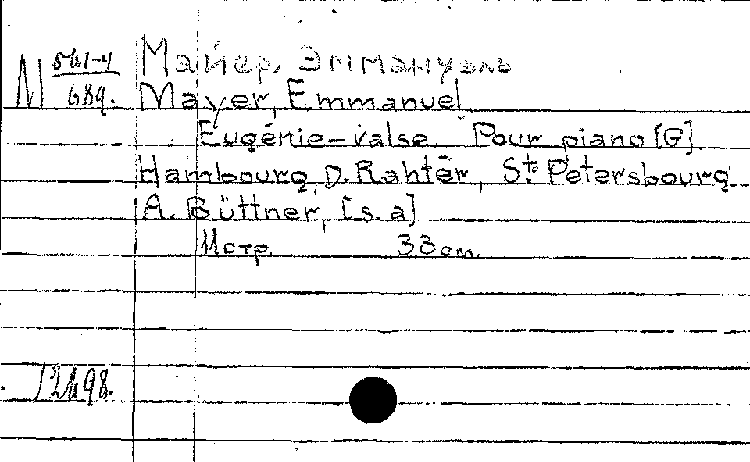 Майер, Эммануэль
М 561-4/689.
Mayer, Emmanuel
Eugénie-valse. Pour piano [G].
Hambourg, D. Rahter, St. Petersbourg
A. Büttner, [s. a]
11стр. 33 cm.